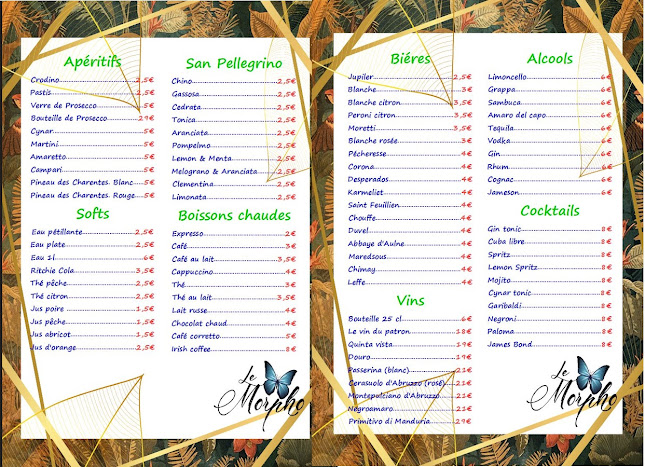 Apéritifs
Crodino 2,5€
Pastis 2,5€
Verre de Prosecco 5€
Bouteille de Prosecco 29€
Cynar 5€
Martini 5€
Amaretto 5€
Campari 5€
Pineau des Charentes. Blanc 5€
Pineau des Charentes. Rouge 5€
Softs
Eau pétillante 2,5€
Eau plate 2,5€
Eau 1l 6€
Ritchie Cola 3,5€
Thé pêche 2,5€
Thé citron 2,5€
Jus poire 1,5€
Jus pêche 1,5€
Jus abricot 1,5€
Jus d'orange 2,5€
San Pellegrino
Chino 2,5€
Gassosa 2,5€
Cedrata 2,5€
Tonica 2,5€
Aranciata 2,5€
Pompelmo 2,5€
Lemon & Menta 2,5€
Melograno & Aranciata 2,5€
Clementina 2,5€
Limonata 2,5€
Boissons chaudes
Expresso 2€
Café 3€
Café au lait 3,5€
Cappuccino 4€
Thé 3€
Thé au lait 3,5€
Lait russe 4€
Chocolat chaud 4€
Café corretto 5€
Irish coffee 8€
Le Morpho
Biéres
Jupiler 2,5€
Blanche 3€
Blanche citron 3,5€
Peroni citron 3,5€
Moretti 3,5€
Blanche rosée 3€
Pécheresse 4€
Corona 4€
Desperados 4€
Karmeliet 4€
Saint Feuillien 4€
Chouffe 4€
Duvel 4€
Abbaye d'Aulne 4€
Maredsous 4€
Chimay 4€
Leffe 4€
Vins
Bouteille 25 cl 6€
Le vin du patron 18€
Quinta vista 19€
Douro 19€
Passerina (blanc) 21€
Cerasuolo d'Abruzzo (rosé) 21€
Montepulciano d'Abruzzo 21€
Negroamaro 21€
Primitivo di Manduria 29€
Alcools
Limoncello 6€
Grappa 6€
Sambuca 6€
Amaro del capo 6€
Tequila 6€
Vodka 6€
Gin 6€
Rhum 6€
Cognac 6€
Jameson 6€
Cocktails
Gin tonic 8€
Cuba libre 8€
Spritz 8€
Lemon Spritz 8€
Mojito 8€
Cynar tonic 8€
Garibaldi 8€
Negroni 8€
Paloma 8€
James Bond 8€
Le Morpho